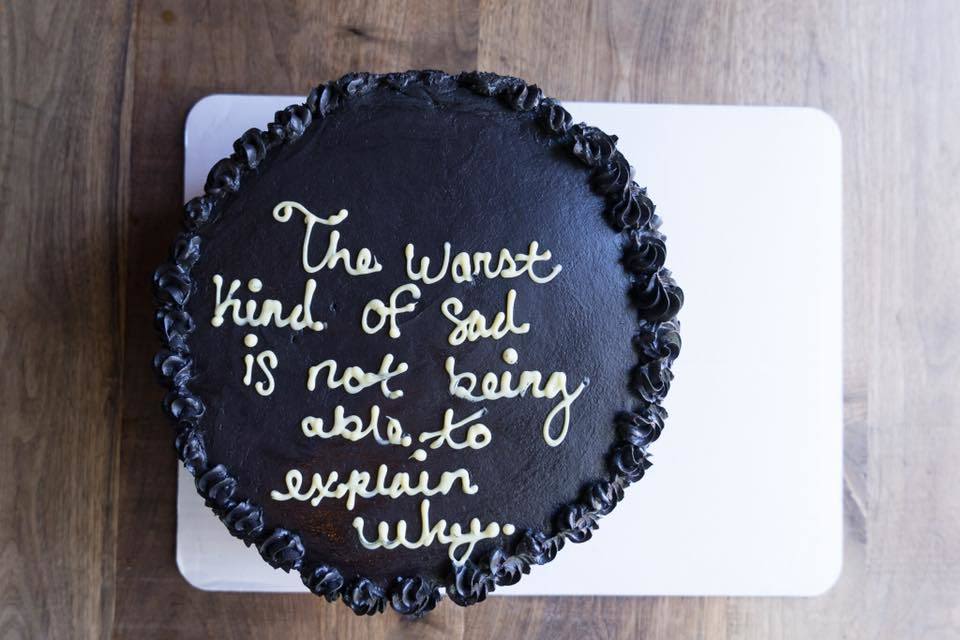 The worst
kind of sad
is not being
able to
explain
why.